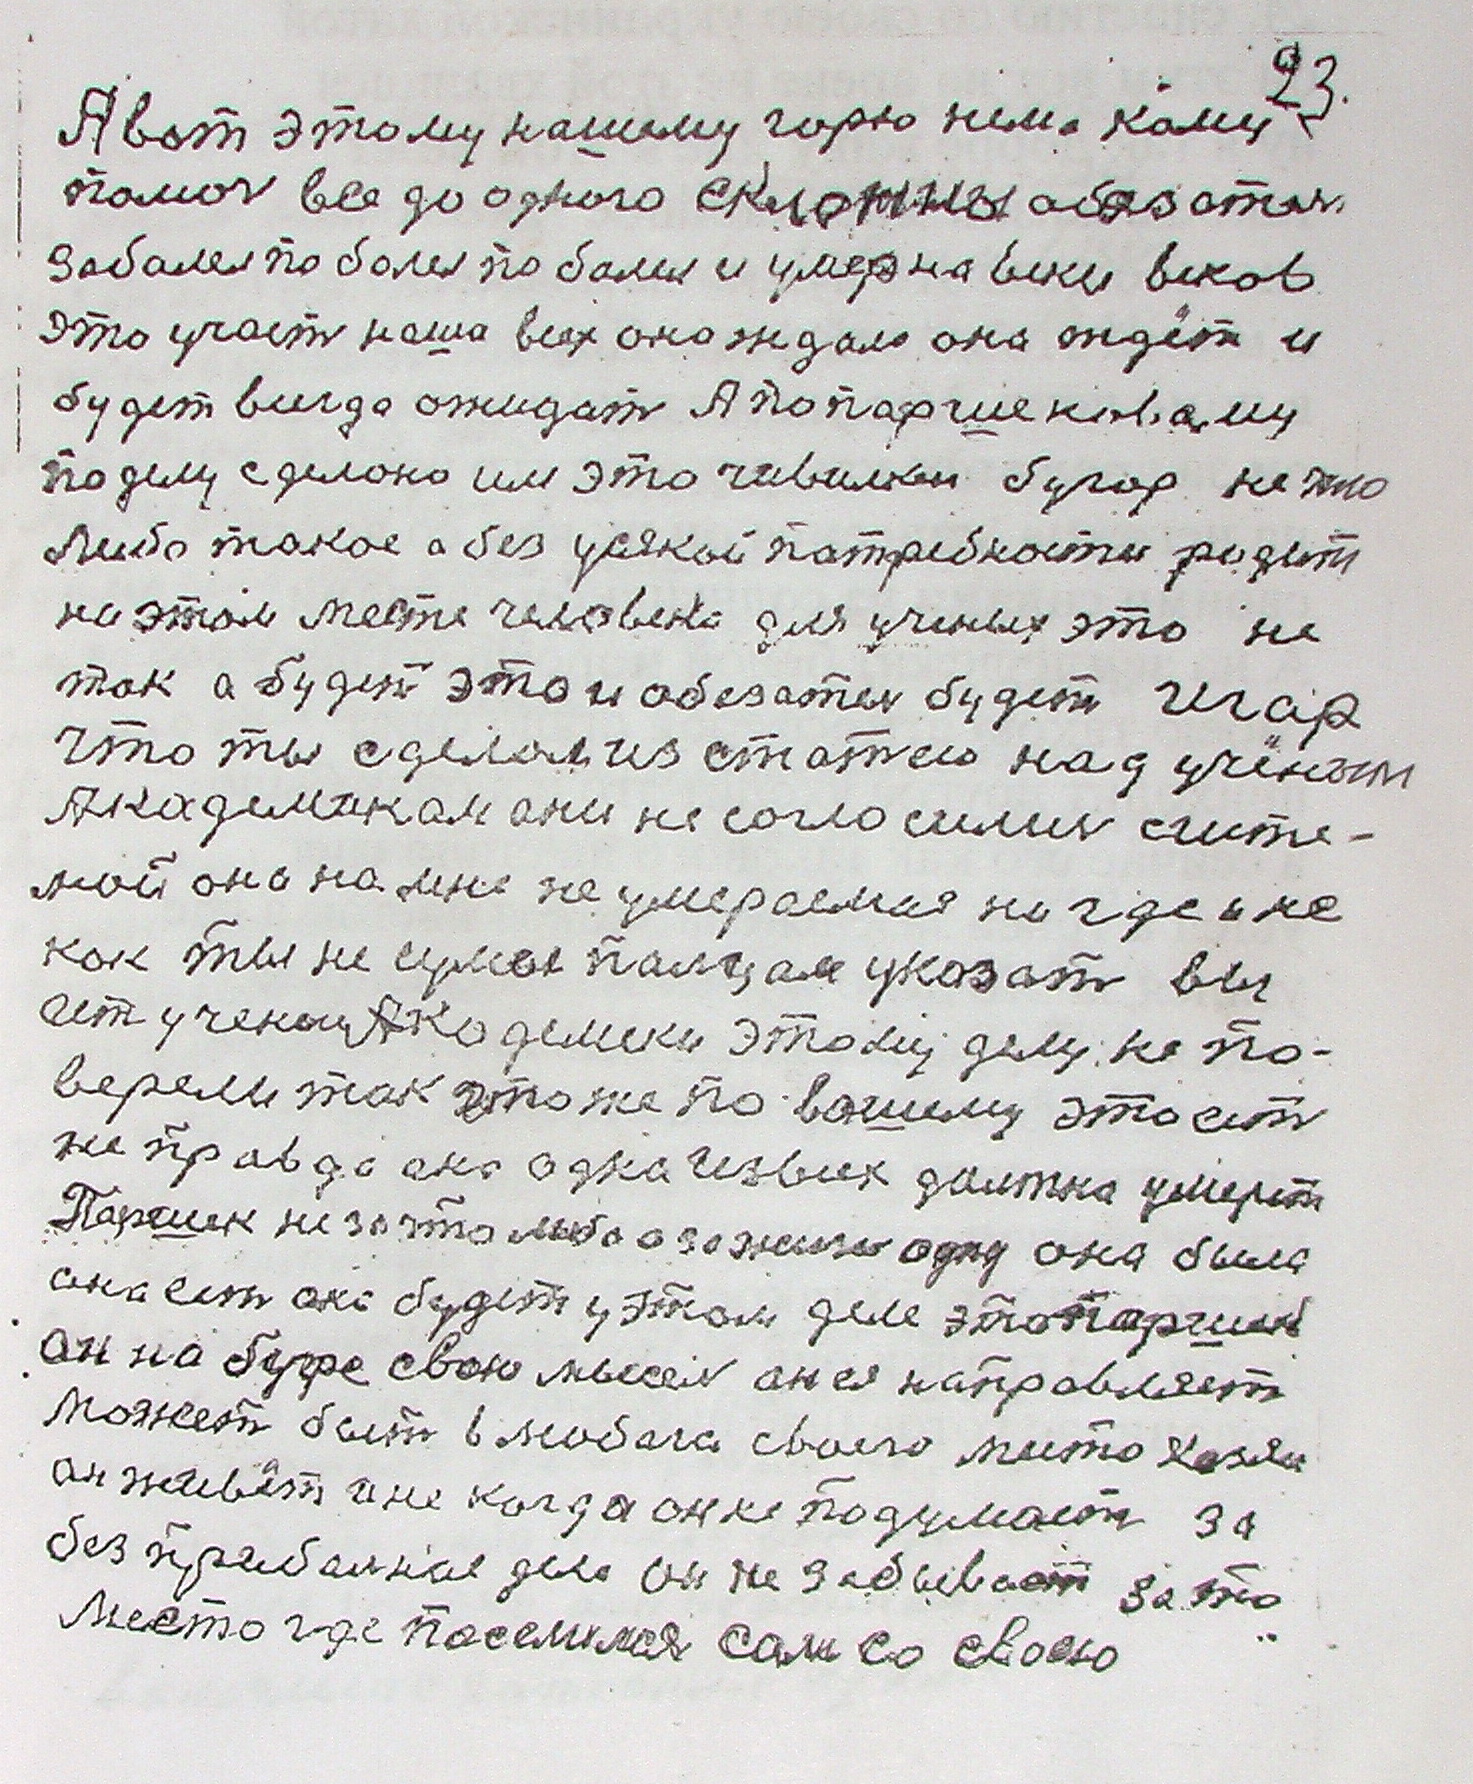 23.
А вот этому нашему горю нема кому
помоч все до одного склонны обязател
заболел по болел по болел и умер на веки веков
это участ наша всех она ждала она ждёт и
будет всегда ожидат А по паршековаму
по делу сделоно им это чивилкин бугор не што
либо такое а без усякой патребности родит
на этом месте человека для ученых это не
так а будет это и обезател будет Игар
что ты сделал из статею над учёным
Академикам они не согласилис систе-
мой она на мне не умераемая нигде и не
как ты не сумел палцам указат вы
ест ученыи Академеки этому делу не по-
верели так што же по вашему это ест
не правда она одна из всех должна умерет
Паршек не за што либо а за жизн одну она была
она ест она будет у этом деле это паршек
он на бугре свою мысел он ея направляет
может быт в любога своего места хозяи
он живёт и не когда он не подумает за
без прибылное дело он не забывает за то
место где поселился сам со своею